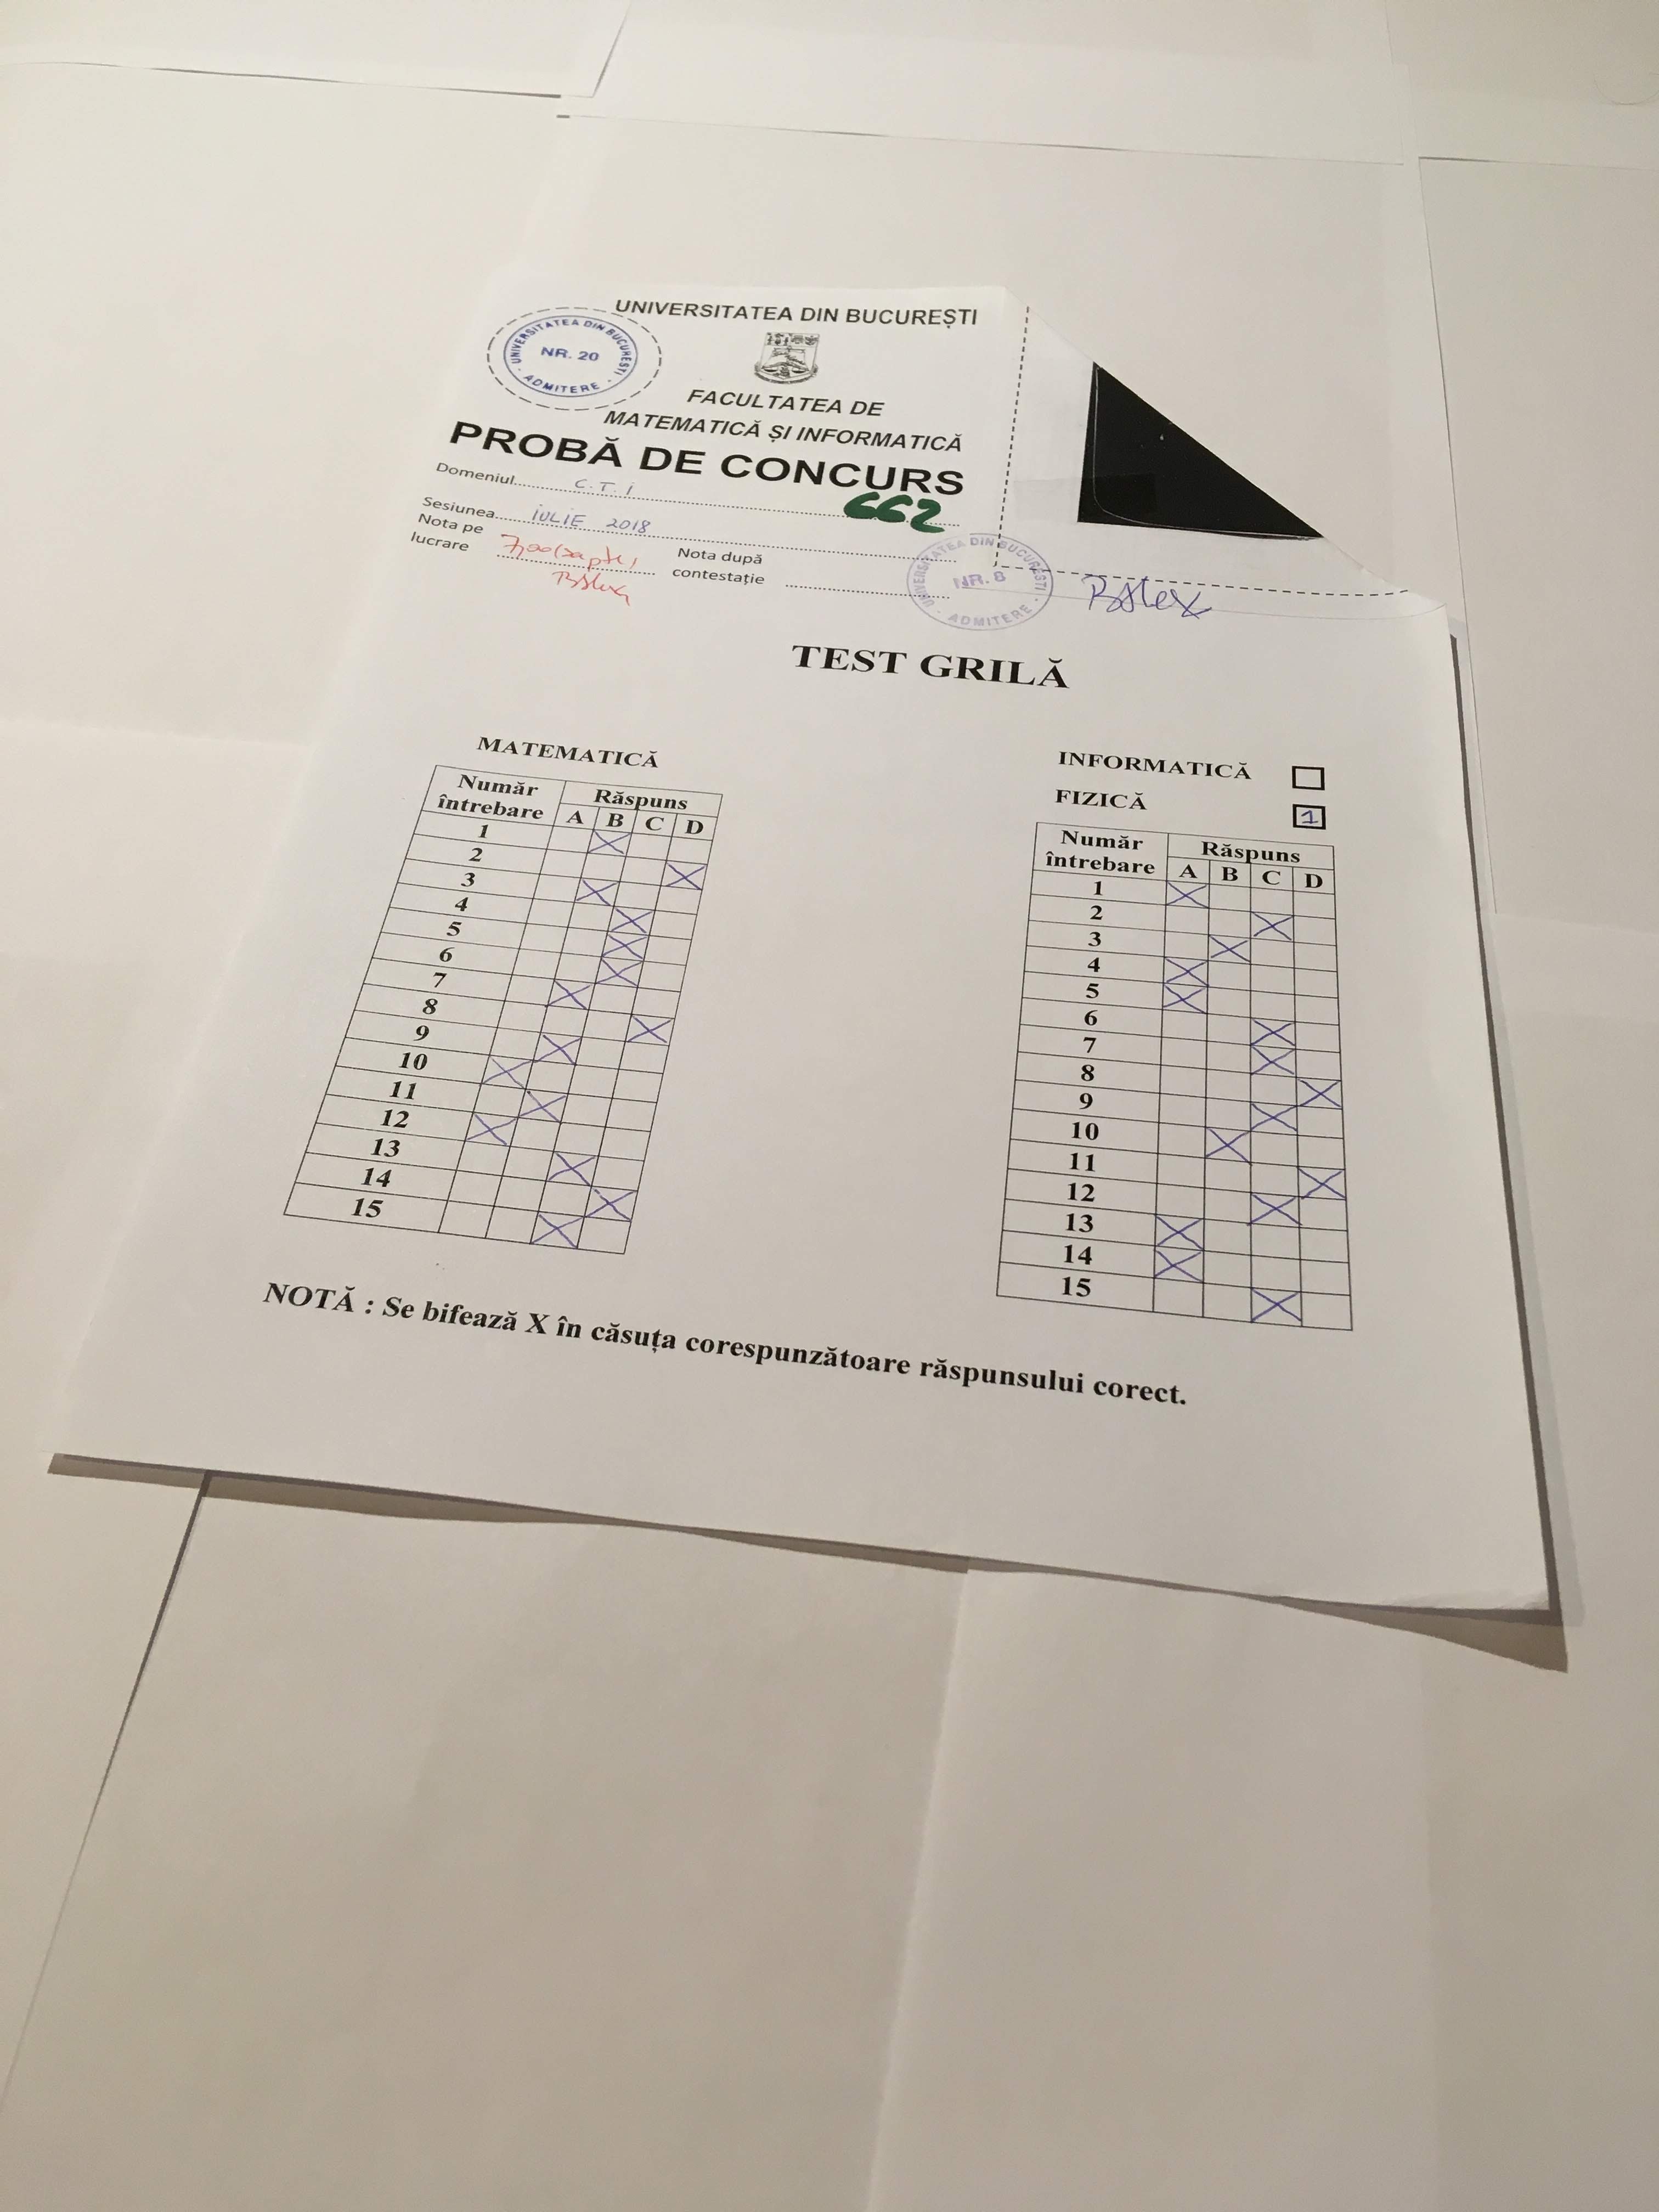 UNIVERSITATEA DIN BUCUREȘTI
UNIVERSITATEA DIN BUCUREȘTI
NR. 20
ADMITERE
FACULTATEA DE
MATEMATICĂ ȘI INFORMATICĂ
PROBĂ DE CONCURS
Domeniul C.T.I
662
Sesiunea IULIE 2018
Nota pe
lucrare 7,00 (șapte)
Nota după
contestație
UNIVERSITATEA DIN BUCUREȘTI
NR. 8
ADMITERE
TEST GRILĂ
MATEMATICĂ
Număr
întrebare
Răspuns
A B C D
1 X
2 X
3 X
4 X
5 X
6 X
7 X
8 X
9 X
10 X
11 X
12 X
13 X
14 X
15 X
INFORMATICĂ
FIZICĂ 1
Număr
întrebare
Răspuns
A B C D
1 X
2 X
3 X
4 X
5 X
6 X
7 X
8 X
9 X
10 X
11 X
12 X
13 X
14 X
15 X
NOTĂ : Se bifează X în căsuța corespunzătoare răspunsului corect.